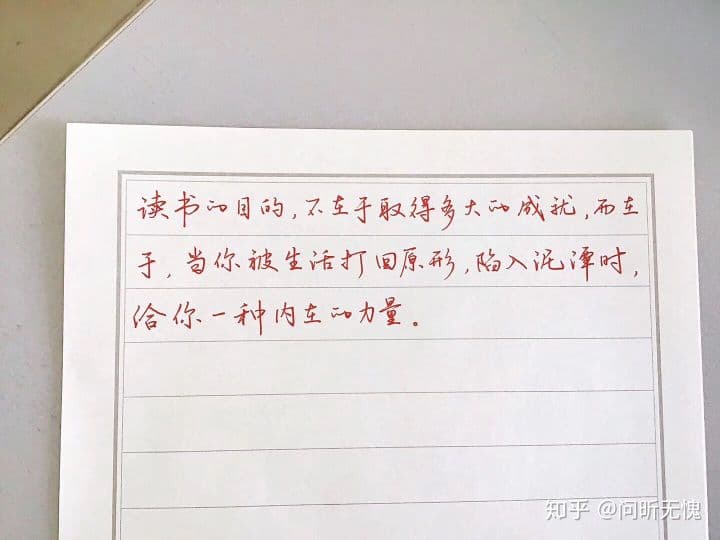 读书的目的,不在于取得多大的成就,而在
于,当你被生活打回原形,陷入泥潭时,
给你一种内在的力量。
知乎 @问昕无愧